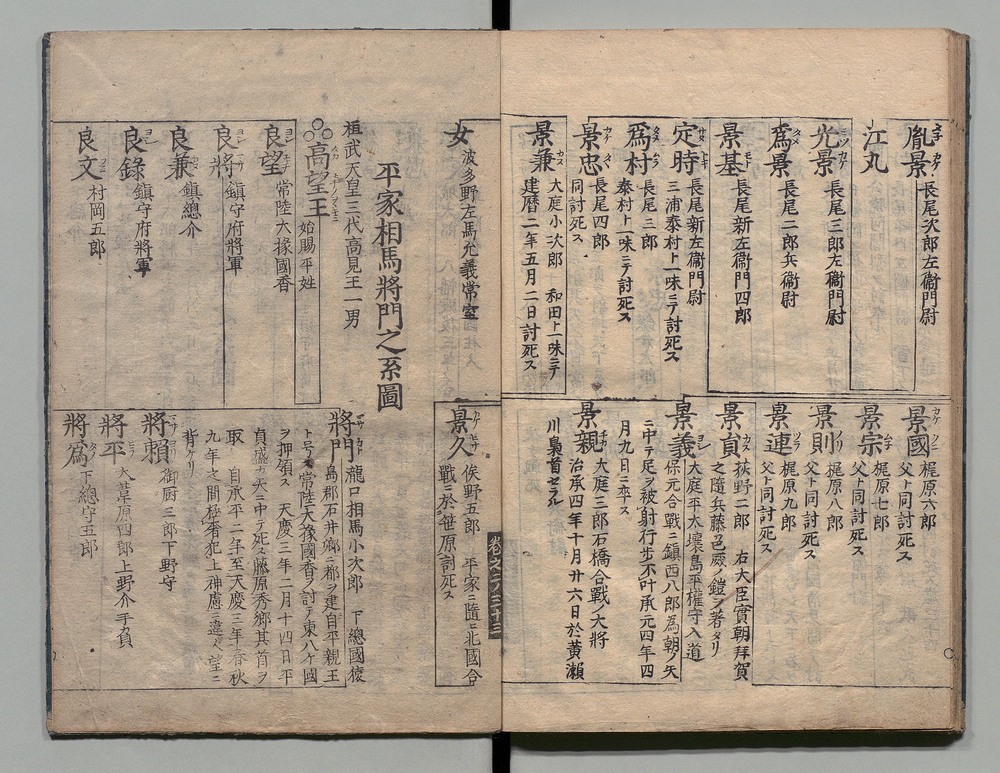 胤景 長尾次郎左衞門尉
江丸
光景 長尾三郎左衞門尉
爲景 長尾二郎兵衞尉
景基 長尾新左衞門四郎
定時 長尾新左衞門尉
三浦泰村ト一味ニテ討死ス
爲村 長尾三郎
泰村ト一味ニテ討死ス
景忠 長尾四郎
同討死ス
景兼 大庭小次郎 和田ト一味ニテ
建暦二年五月二日討死ス
景國 梶原六郎
父ト同討死ス
景宗 梶原七郎
父ト同討死ス
景則 梶原八郎
父ト同討死ス
景連 梶原九郎
父ト同討死ス
景貞 荻野二郎 右大臣實朝拜賀
之隨兵藤色威ノ鎧ヲ著タリ
景義 大庭平太壊島平權守入道
保元合戰ニ鎭西八郎爲朝ノ矢
ニ中テ足ヲ被射行歩不叶承元四年四
月九日ニ卒ス
景親 大庭三郎石橋合戰ノ大將
治承四年十月廿六日於黄瀬
川梟首セラル
女 波多野左馬允義常室
平家相馬將門之系圖
桓武天皇三代高見王一男
高望王 始賜平姓
良望 常陸大掾國香
良將 鎭守府將軍
良兼 鎭總介
良錄 鎭守府將軍
良文 村岡五郎
卷之二ノ三十三
景久 俟野五郎 平家ニ隨ヒ北國合
戰ニ於笹原討死ス
將門 瀧口相馬小次郎 下總國猿
島郡石井郷ニ都ヲ建自平親王
ト号ス常陸大掾國香ヲ討テ東八ケ國
ヲ押領ス 天慶三年二月十四日平
貞盛カ矢ニ中テ死ス藤原秀郷其首ヲ
取 自承平二年至天慶三年春秋
九年之間極奢犯上神慮ニ違ヘ望ニ
背ケリ
將頼 御厨三郎下野守
將平 大葦原四郎上野介手負
將爲 下總守五郎